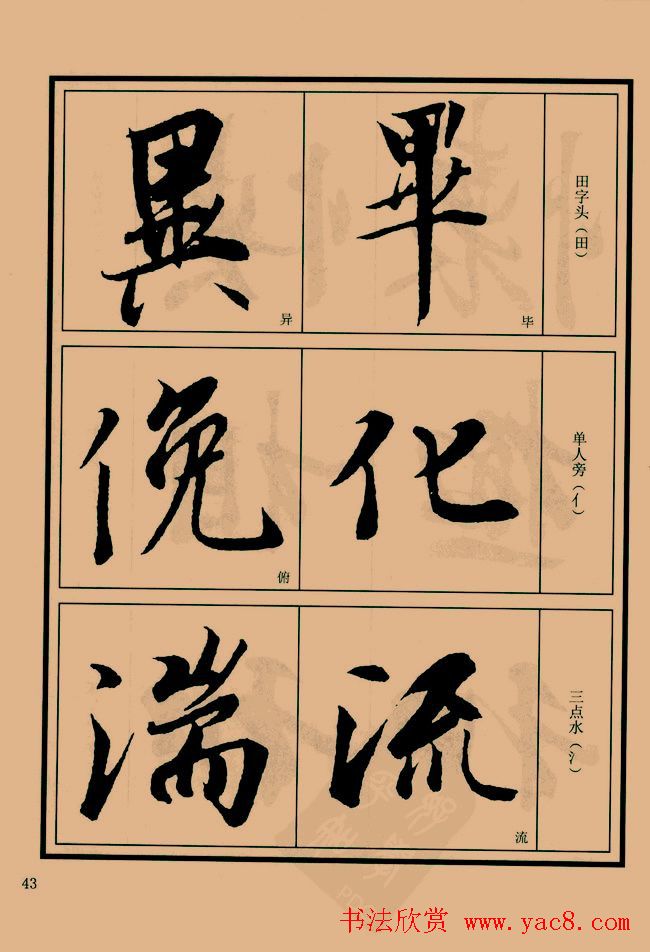 田字头（田）
畢
毕
異
异
单人旁（亻）
化
俛
俯
三点水（氵）
流
流
湍
43
书法欣赏 www.yac8.com